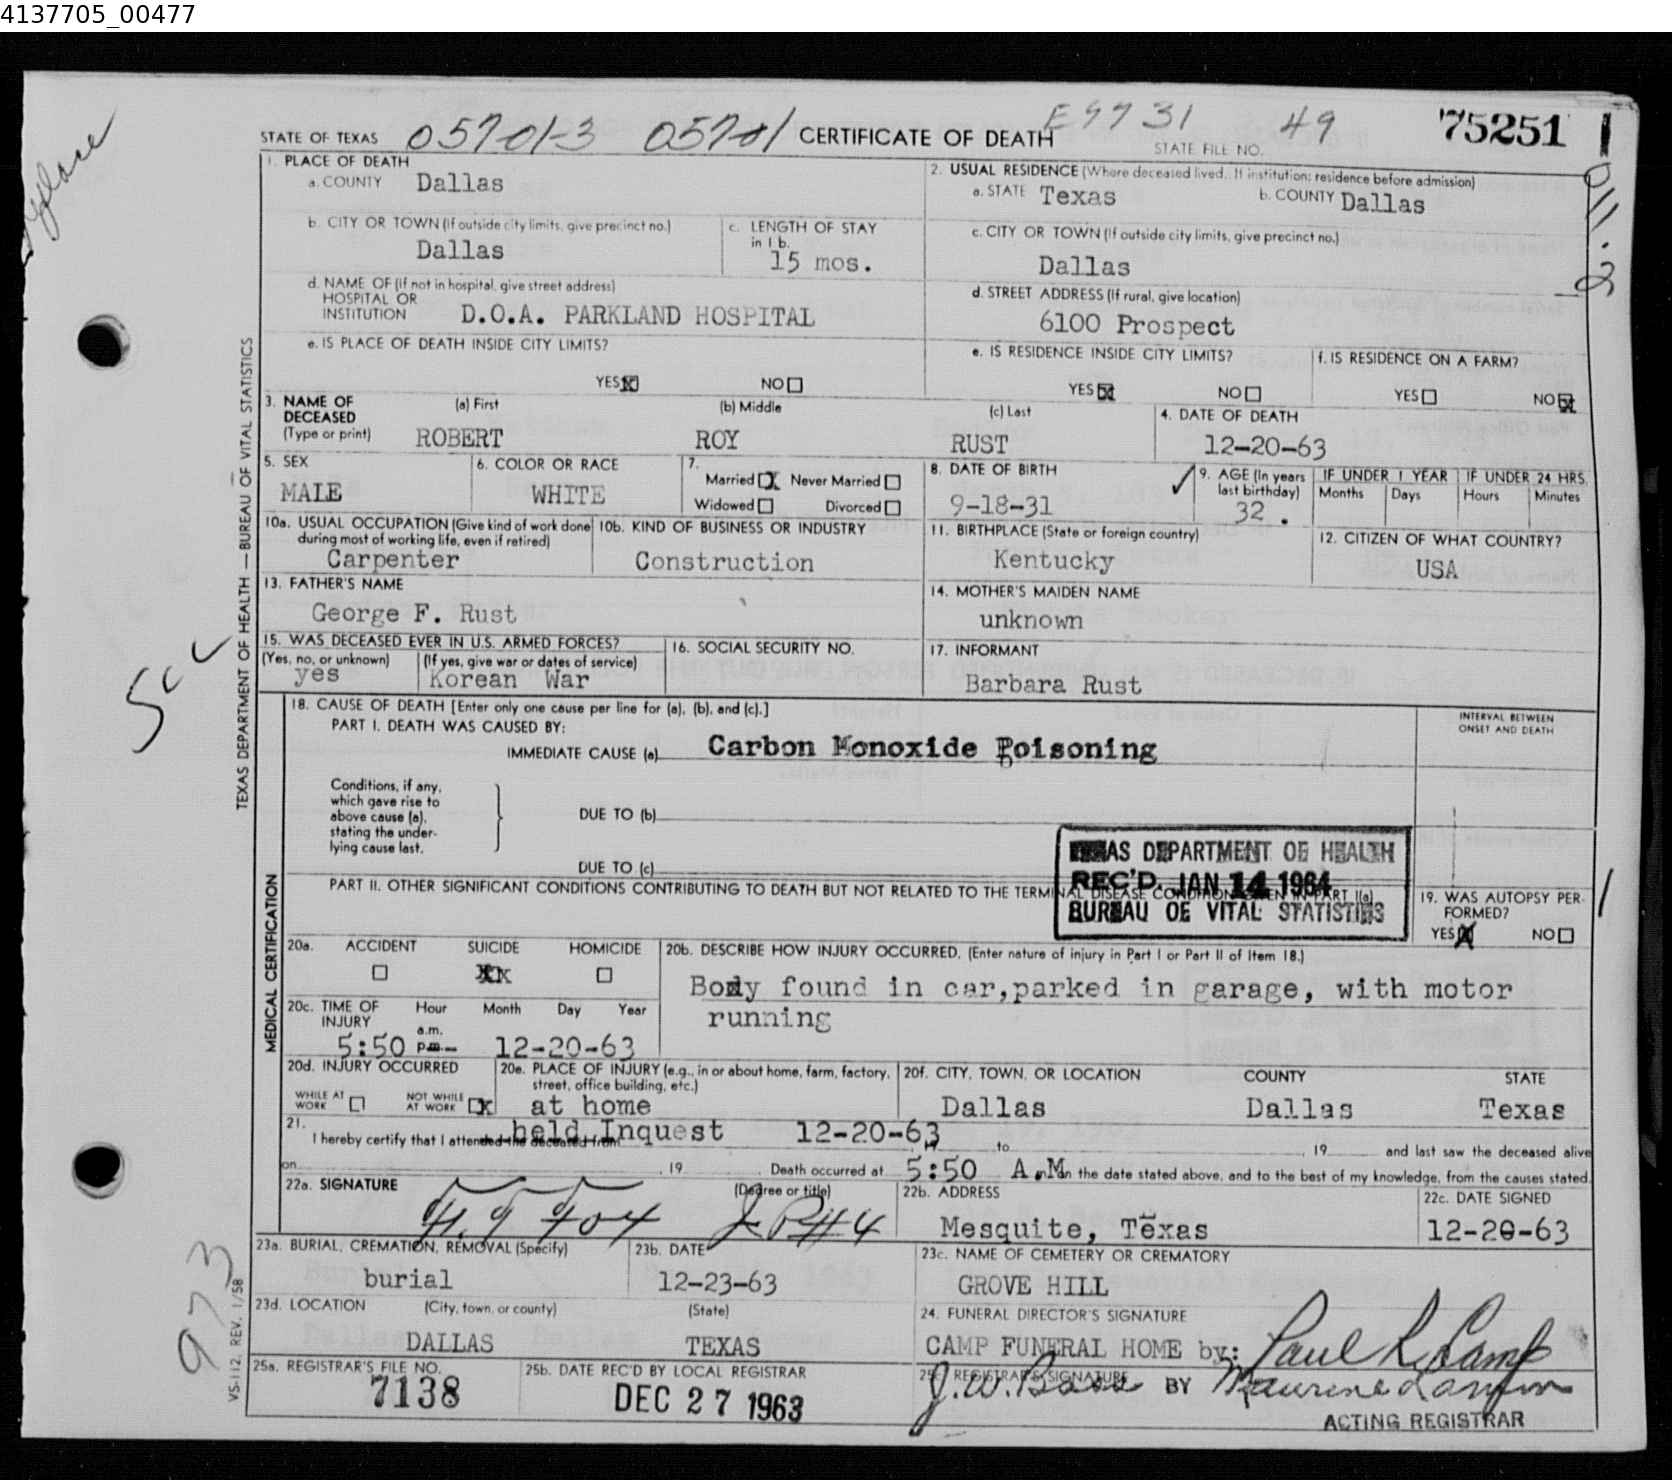 4137705_00477
STATE OF TEXAS 05701-3 05701 CERTIFICATE OF DEATH E9731 STATE FILE NO. 49 75251
1. PLACE OF DEATH
a. COUNTY Dallas
2. USUAL RESIDENCE (Where deceased lived. If institution: residence before admission)
a. STATE Texas b. COUNTY Dallas
b. CITY OR TOWN (If outside city limits, give precinct no.)
Dallas
c. LENGTH OF STAY
in 1 b.
15 mos.
c. CITY OR TOWN (If outside city limits, give precinct no.)
Dallas
d. NAME OF (If not in hospital, give street address)
HOSPITAL OR
INSTITUTION D.O.A. PARKLAND HOSPITAL
d. STREET ADDRESS (If rural, give location)
6100 Prospect
e. IS PLACE OF DEATH INSIDE CITY LIMITS?
YES NO
e. IS RESIDENCE INSIDE CITY LIMITS?
YES NO
f. IS RESIDENCE ON A FARM?
YES NO
3. NAME OF
DECEASED
(Type or print)
(a) First (b) Middle (c) Last
ROBERT ROY RUST
4. DATE OF DEATH
12-20-63
5. SEX
MALE
6. COLOR OR RACE
WHITE
7.
Married X Never Married
Widowed Divorced
8. DATE OF BIRTH
9-18-31
9. AGE (In years
last birthday)
32 .
IF UNDER 1 YEAR
Months Days
IF UNDER 24 HRS.
Hours Minutes
10a. USUAL OCCUPATION (Give kind of work done
during most of working life, even if retired)
Carpenter
10b. KIND OF BUSINESS OR INDUSTRY
Construction
11. BIRTHPLACE (State or foreign country)
Kentucky
12. CITIZEN OF WHAT COUNTRY?
USA
13. FATHER'S NAME
George F. Rust
14. MOTHER'S MAIDEN NAME
unknown
15. WAS DECEASED EVER IN U.S. ARMED FORCES?
(Yes, no, or unknown) (If yes, give war or dates of service)
yes Korean War
16. SOCIAL SECURITY NO.
17. INFORMANT
Barbara Rust
18. CAUSE OF DEATH [Enter only one cause per line for (a), (b), and (c).]
PART I. DEATH WAS CAUSED BY:
IMMEDIATE CAUSE (a) Carbon Monoxide Poisoning
INTERVAL BETWEEN
ONSET AND DEATH
Conditions, if any,
which gave rise to
above cause (a),
stating the under-
lying cause last.
DUE TO (b)
DUE TO (c)
PART II. OTHER SIGNIFICANT CONDITIONS CONTRIBUTING TO DEATH BUT NOT RELATED TO THE TERMINAL DISEASE CONDITION GIVEN IN PART I(a)
TEXAS DEPARTMENT OF HEALTH
REC'D JAN 14 1964
BUREAU OF VITAL STATISTICS
19. WAS AUTOPSY PER-
FORMED?
YES X NO
20a. ACCIDENT SUICIDE HOMICIDE
XX
20b. DESCRIBE HOW INJURY OCCURRED. (Enter nature of injury in Part I or Part II of Item 18.)
Body found in car,parked in garage, with motor
running
20c. TIME OF
INJURY
Hour Month Day Year
a.m.
5:50 p.m. 12-20-63
20d. INJURY OCCURRED
WHILE AT
WORK
NOT WHILE
AT WORK X
20e. PLACE OF INJURY (e.g., in or about home, farm, factory,
street, office building, etc.)
at home
20f. CITY, TOWN, OR LOCATION COUNTY STATE
Dallas Dallas Texas
21. held Inquest 12-20-63
I hereby certify that I attended the deceased from , 19 to , 19 and last saw the deceased alive
on , 19 . Death occurred at 5:50 A.M. on the date stated above, and to the best of my knowledge, from the causes stated.
22a. SIGNATURE (Degree or title)
22b. ADDRESS
Mesquite, Texas
22c. DATE SIGNED
12-20-63
23a. BURIAL, CREMATION, REMOVAL (Specify)
burial
23b. DATE
12-23-63
23c. NAME OF CEMETERY OR CREMATORY
GROVE HILL
23d. LOCATION (City, town, or county) (State)
DALLAS TEXAS
24. FUNERAL DIRECTOR'S SIGNATURE
CAMP FUNERAL HOME by: Paul R Camp
25a. REGISTRAR'S FILE NO.
7138
25b. DATE REC'D BY LOCAL REGISTRAR
DEC 27 1963
25c. REGISTRAR'S SIGNATURE
J.W. Bass BY Maurine
ACTING REGISTRAR
TEXAS DEPARTMENT OF HEALTH — BUREAU OF VITAL STATISTICS
MEDICAL CERTIFICATION
VS-112, REV. 1/58
973